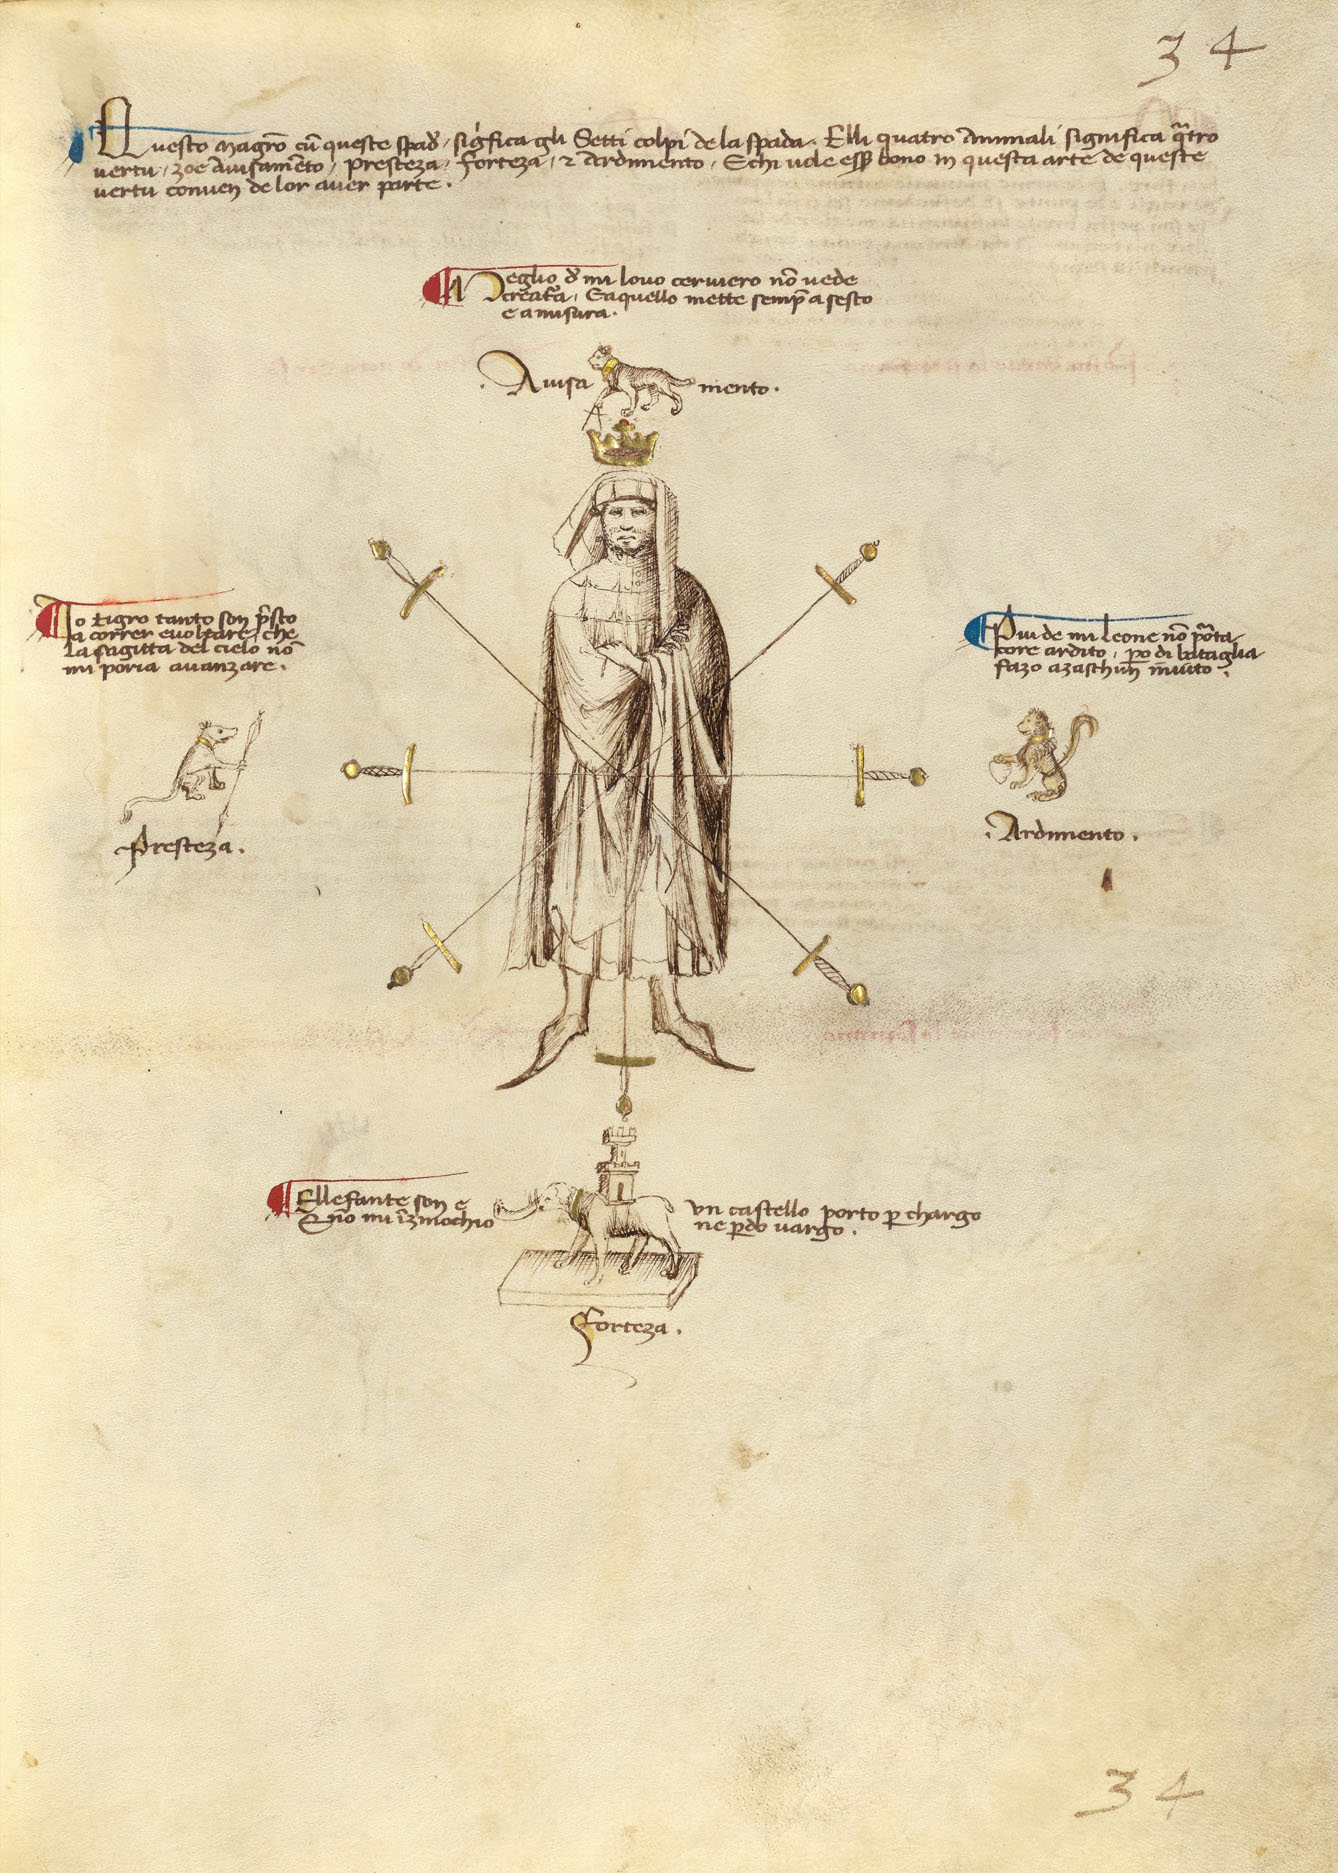 34
Questo Magro cu queste spad sigfica gli Setti colpi de la spada. Elli quatro Animali significa qtro
vertu, zoe Avisameto, Presteza, Forteza, & Ardimento, E chi vole ess bono in questa arte de queste
vertu conven de lor aver parte.
Meglio d mi lovo cerviero no vede
creatura, E aquello mette semp a sesto
e a misura.
Avisamento.
Io tigro tanto son psto
a correr e voltare, che
la sagitta del cielo no
mi poria avanzare.
Piu de mi Leone no porta
core ardito, po di bataglia
fazo a zaschun invito.
Presteza.
Ardimento.
Ellefante son e un castello porto p chargo
E no mi izinochio ne pdo vargo.
Forteza.
34